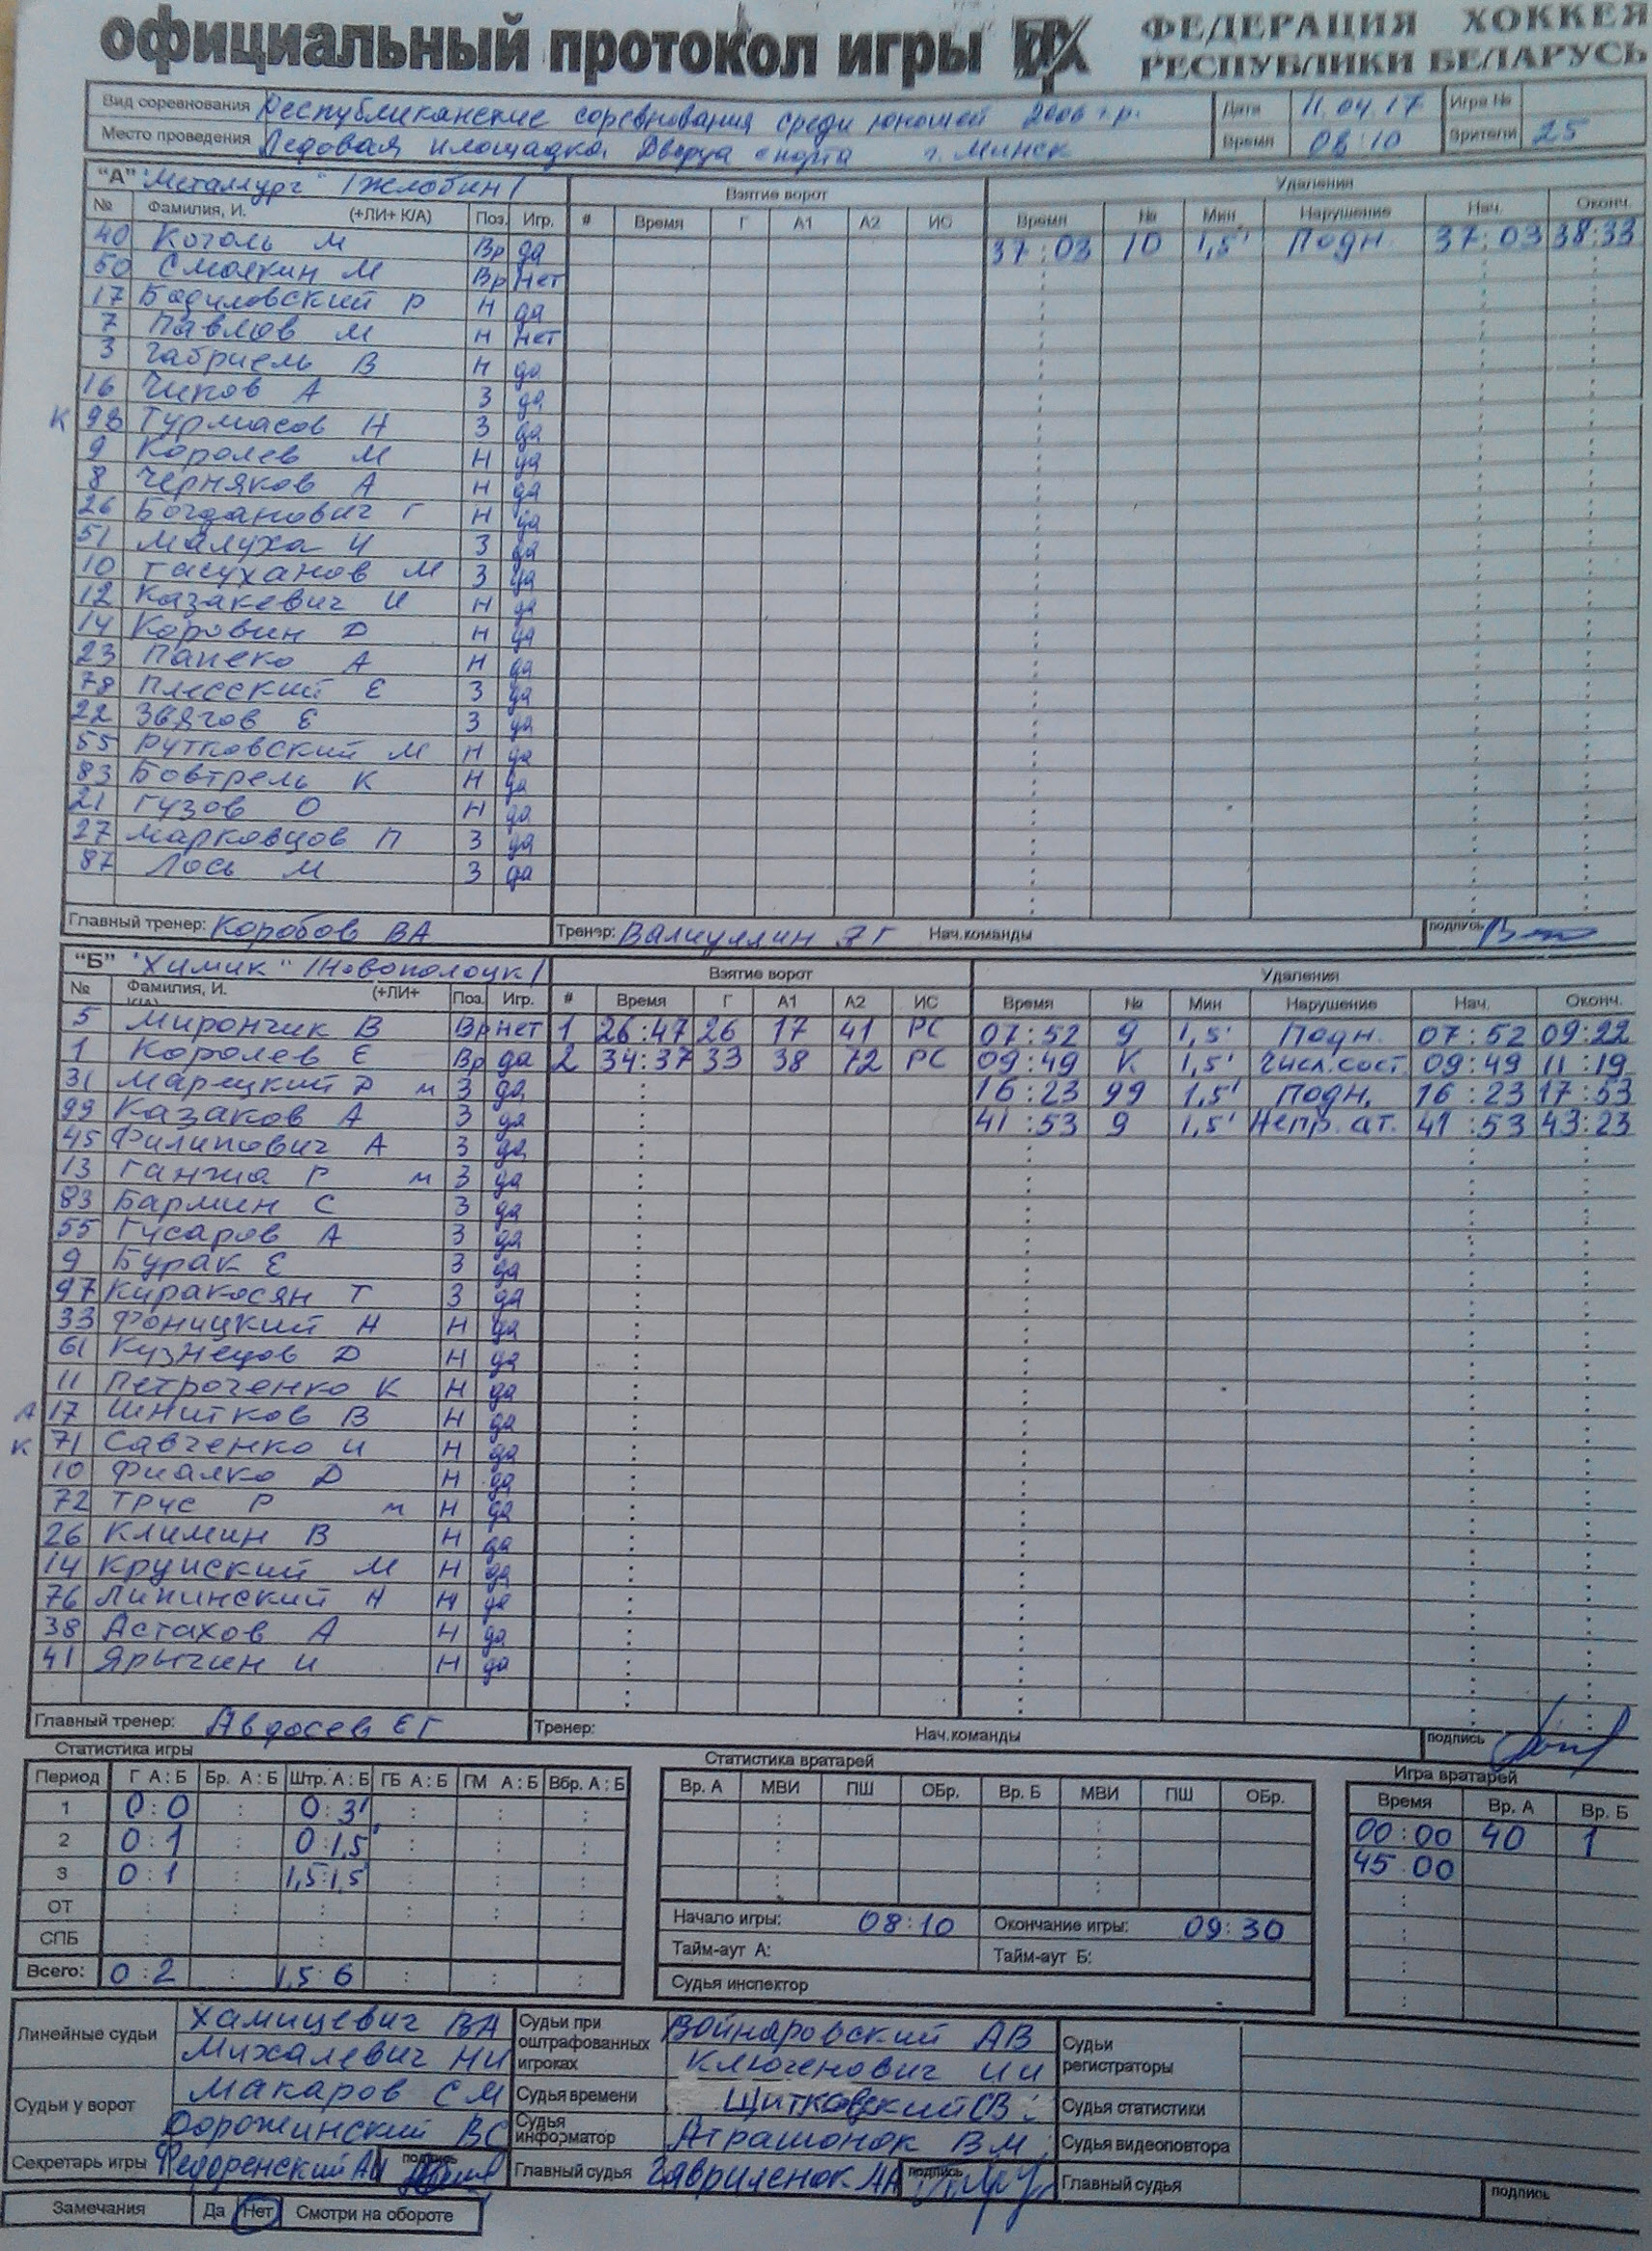 официальный протокол игры ФЕДЕРАЦИЯ ХОККЕЯ
РЕСПУБЛИКИ БЕЛАРУСЬ
Вид соревнования Республиканские соревнования среди юношей 2006 г.р. Дата 11.04.17 Игра №
Место проведения Ледовая площадка Дворца спорта г. Минск Время 08:10 Зрители 25
"А" "Металлург" /Жлобин/ Взятие ворот Удаления
№ Фамилия, И. (+ЛИ+ К/А) Поз. Игр. # Время Г А1 А2 ИС Время № Мин Нарушение Нач. Оконч.
40 Коголь М Вр да 37:03 10 1,5' Подн. 37:03 38:33
50 Смолкин М Вр Нет
17 Бадиловский Р Н да
7 Павлов М Н Нет
3 Габриель В Н да
16 Чиков А З да
К 98 Турмасов Н З да
9 Королев М Н да
8 Черняков А Н да
26 Богданович Г Н да
51 Малуха И З да
10 Тасуханов М З да
12 Казакевич И Н да
14 Коровин Д Н да
23 Панеко А Н да
78 Плесский Е З да
22 Звягов Е З да
55 Рутковский М Н да
83 Бовтрель К Н да
21 Гузов О Н да
27 Марковцов П З да
87 Лось М З да
Главный тренер: Коробов ВА Тренер: Валиуллин Нач.команды подпись
"Б" "Химик" /Новополоцк/ Взятие ворот Удаления
№ Фамилия, И. (+ЛИ+ К/А) Поз. Игр. # Время Г А1 А2 ИС Время № Мин Нарушение Нач. Оконч.
5 Мирончик В Вр нет 1 26:47 26 17 41 РС 07:52 9 1,5' Подн. 07:52 09:22
1 Королев Е Вр да 2 34:37 33 38 72 РС 09:49 К 1,5' Числ.сост. 09:49 11:19
31 Марецкий Р м З да 16:23 99 1,5' Подн. 16:23 17:53
99 Казаков А З да 41:53 9 1,5' Непр. ат. 41:53 43:23
45 Филипович А З да
13 Ганжа Р м З да
83 Бармин С З да
55 Гусаров А З да
9 Бурак Е З да
97 Киракосян Т З да
33 Фоницкий Н Н да
61 Кузнецов Д Н да
11 Петроченко К Н да
А 17 Шнитков В Н да
К 71 Савченко И Н да
10 Фиалко Д Н да
72 Трус Р м Н да
26 Климин В Н да
14 Круиский М Н да
76 Липинский Н Н да
38 Астахов А Н да
41 Ярыгин И Н да
Главный тренер: Авдосев ЕГ Тренер: Нач.команды подпись
Статистика игры Статистика вратарей Игра вратарей
Период Г А:Б Бр. А:Б Штр. А:Б ГБ А:Б ГМ А:Б Вбр. А:Б Вр. А МВИ ПШ ОБр. Вр. Б МВИ ПШ ОБр. Время Вр. А Вр. Б
1 0:0 0:3' 00:00 40 1
2 0:1 0:1,5' 45:00
3 0:1 1,5:1,5
ОТ Начало игры: 08:10 Окончание игры: 09:30
СПБ Тайм-аут А: Тайм-аут Б:
Всего: 0:2 1,5:6 Судья инспектор
Линейные судьи Хамицевич ВА Судьи при оштрафованных игроках Войнаровский АВ Судьи регистраторы
Михалевич НИ Ключенович ИИ
Судьи у ворот Макаров СМ Судья времени Щитковский СВ Судья статистики
Дорожинский ВС Судья информатор Атрашонок ВМ Судья видеоповтора
Секретарь игры Федоренский АИ подпись Главный судья Гавриленок АА подпись Главный судья подпись
Замечания Да Нет Смотри на обороте